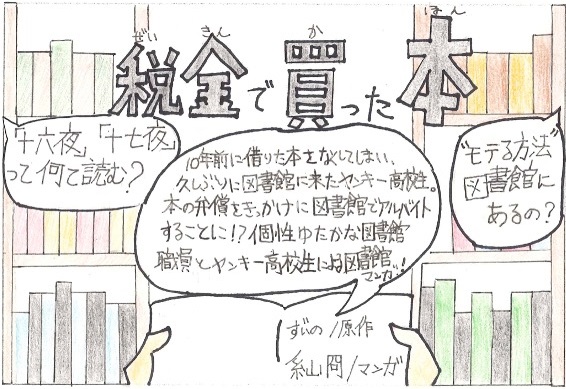 ぜいきん か ほん
税金で買った本
「十六夜」「十七夜」
って何て読む?
10年前に借りた本をなくしてしまい、
久しぶりに図書館に来たヤンキー高校生。
本の弁償をきっかけに図書館でアルバイト
することに!?個性ゆたかな図書館
職員とヤンキー高校生による図書館
マンガ!
"モテる方法"
図書館に
あるの?
ずいの/原作
系山冏/マンガ